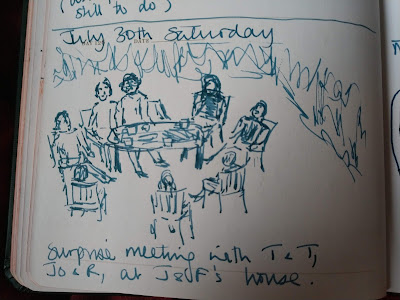 still to do)
July 30th Saturday
Surprise meeting with T & T,
Jo & R, at J & F's house.